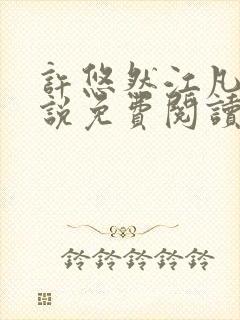 許悠然江凡
說免費閱讀
鈴鈴鈴鈴鈴